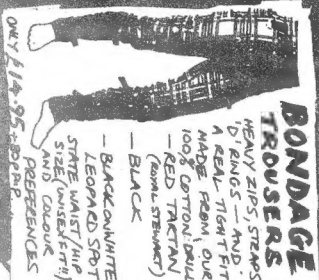 BONDAGE
TROUSERS
HEAVY ZIPS, STRAPS
'D' RINGS — AND
A REAL TIGHT FIT
MADE FROM OUR
100% COTTON DRILL
— RED TARTAN
(ROYAL STEWART)
— BLACK
— BLACK ON WHITE
LEOPARD SPOT
STATE WAIST/HIP
SIZE, (UNISEX FIT!!)
AND COLOUR
PREFERENCES
ONLY £14.95 + 80p P&P